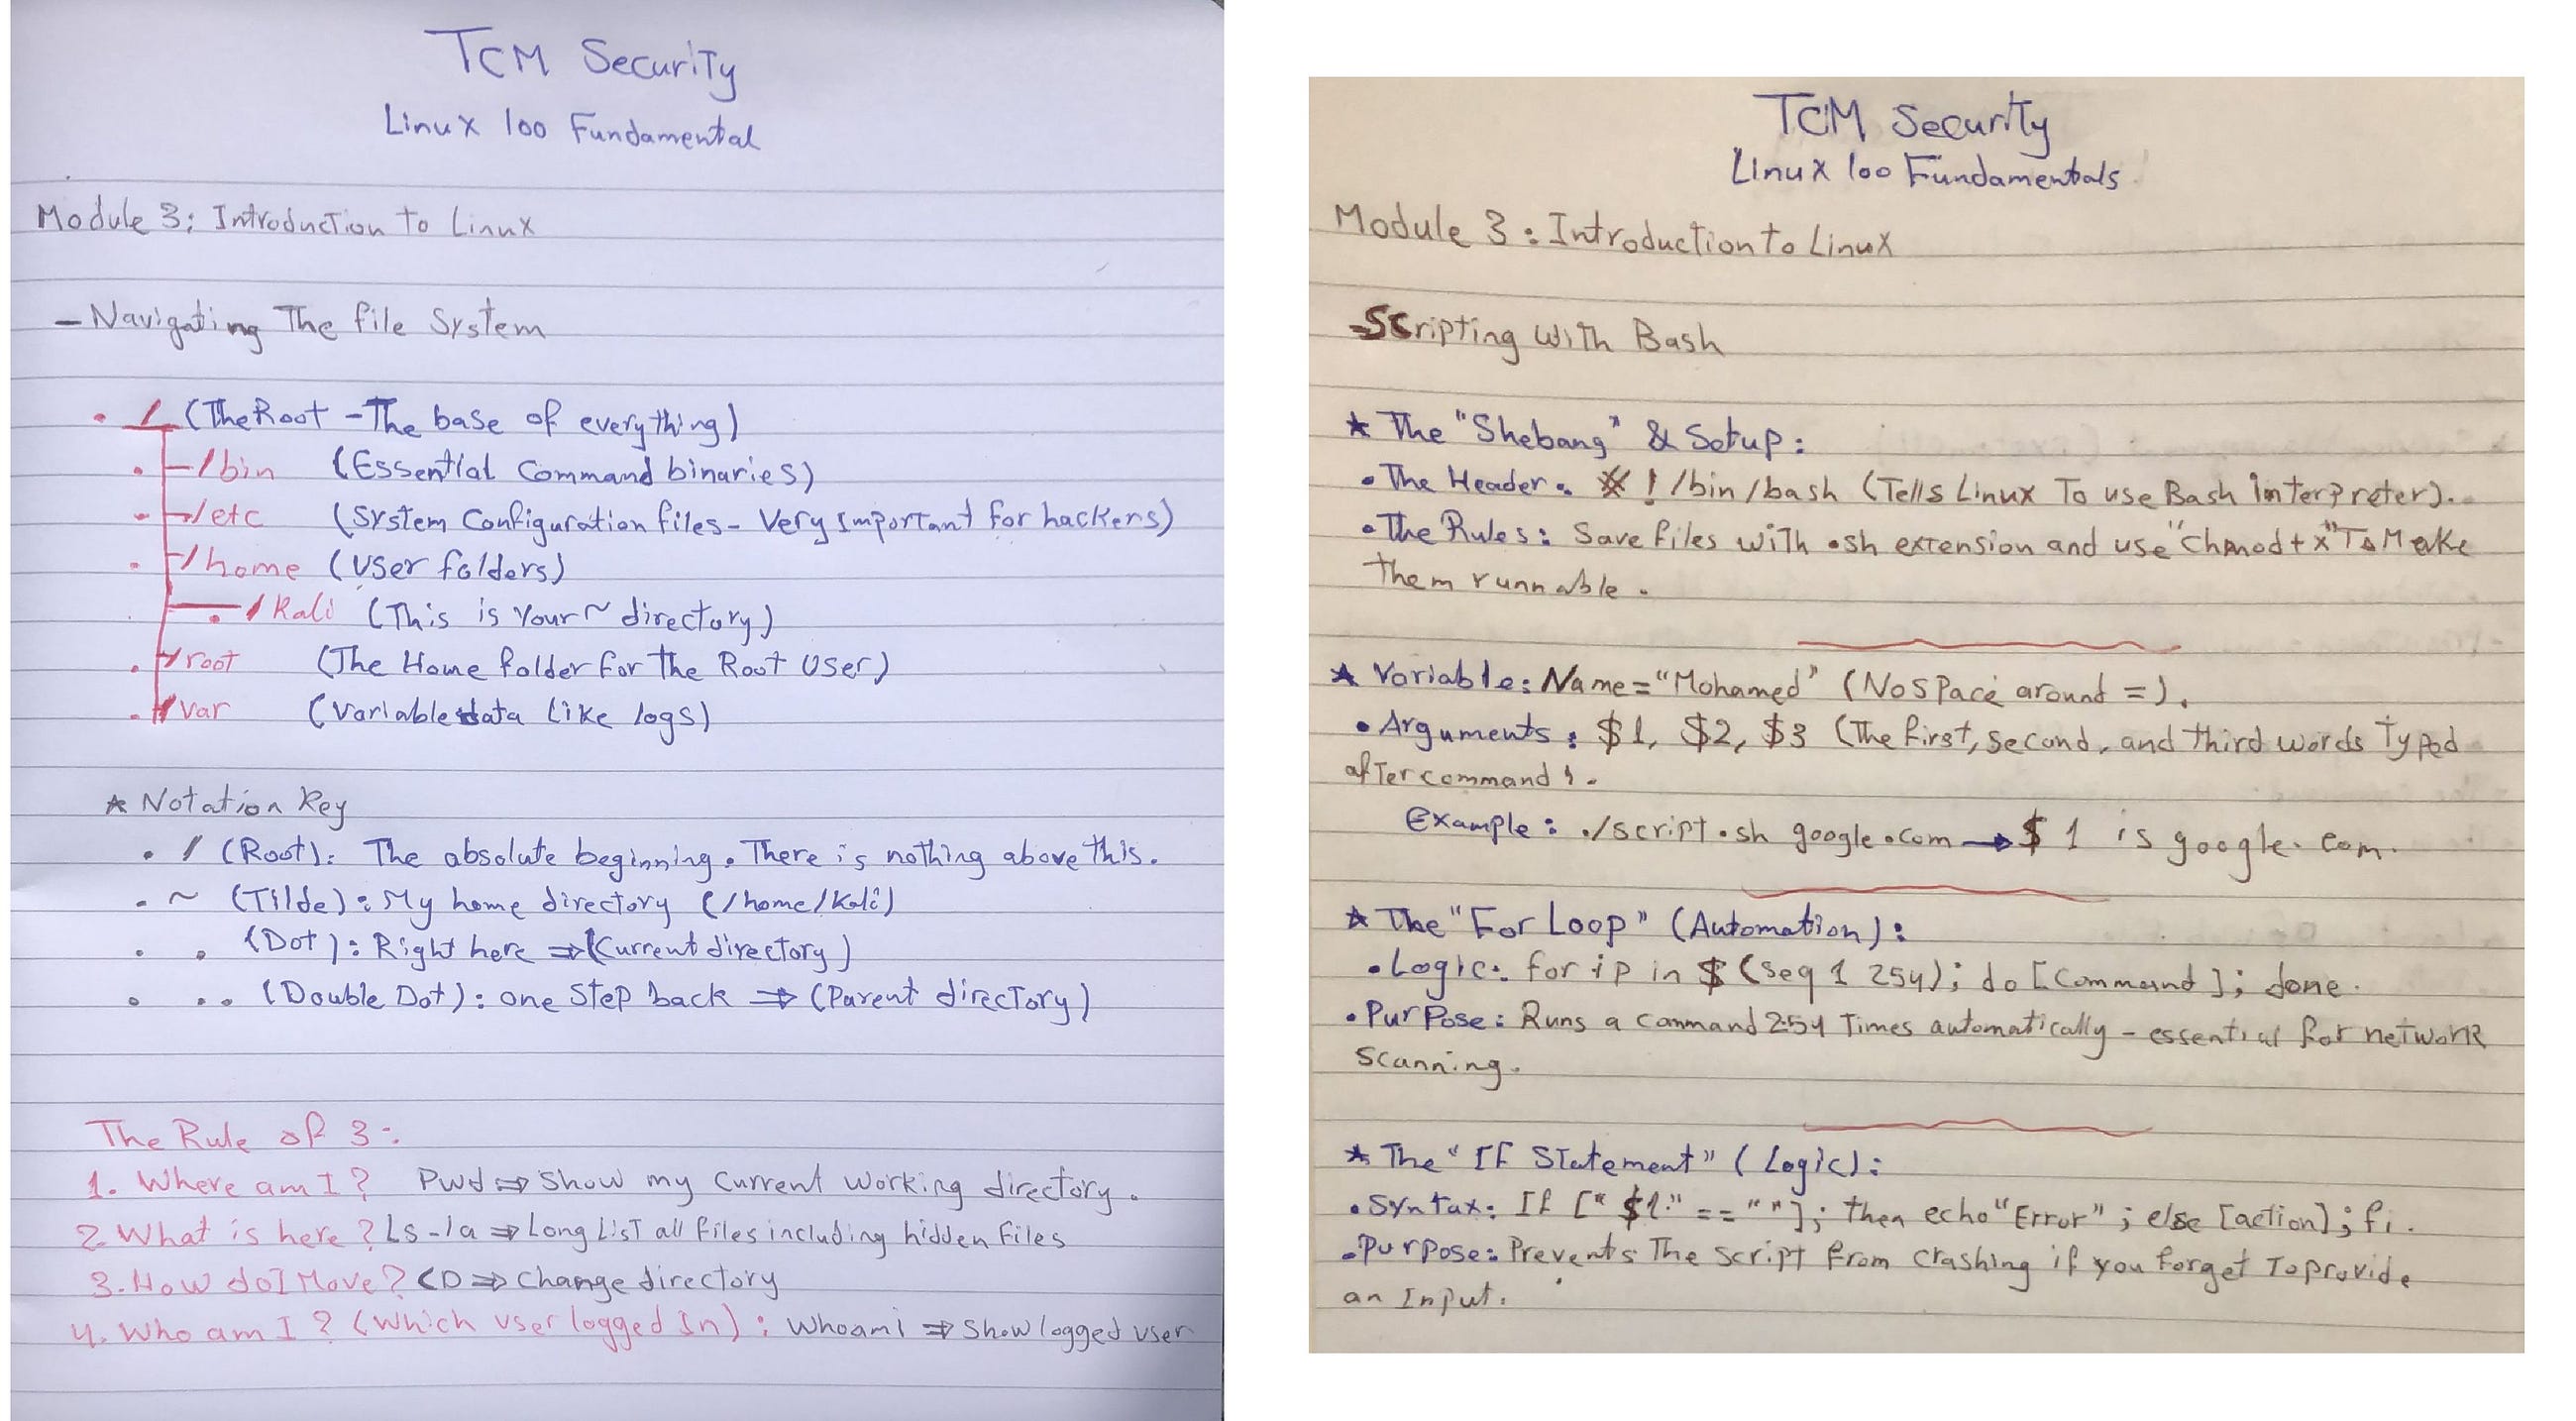 TCM Security
Linux 100 Fundamental
Module 3: Introduction to Linux
- Navigating The file System
• / (The Root - The base of everything)
• /bin (Essential Command binaries)
• /etc (System Configuration files - Very Important for hackers)
• /home (User folders)
• /kali (This is Your ~ directory)
• /root (The Home folder for The Root User)
• /var (Variable data like logs)
★ Notation Key
• / (Root): The absolute beginning. There is nothing above this.
• ~ (Tilde): My home directory (/home/kali)
• . (Dot): Right here ⇒ (Current directory)
• .. (Double Dot): one Step back ⇒ (Parent directory)
The Rule of 3:
1. Where am I? Pwd ⇒ Show my Current working directory.
2. What is here? Ls -la ⇒ Long List all files including hidden files
3. How do I Move? CD ⇒ Change directory
4. Who am I? (Which User logged In): Whoami ⇒ Show logged user
TCM Security
Linux 100 Fundamentals
Module 3: Introduction to Linux
- Scripting With Bash
★ The "Shebang" & Setup:
• The Header: #!/bin/bash (Tells Linux To use Bash interpreter).
• The Rules: Save files with .sh extension and use "Chmod +x" To Make
Them runnable.
★ Variable: Name="Mohamed" (No Space around =).
• Arguments: $1, $2, $3 (The first, second, and third words Typed
after command).
Example: ./script.sh google.com → $1 is google.com.
★ The "For Loop" (Automation):
• Logic: for ip in $(seq 1 254); do [Command]; done.
• Purpose: Runs a command 254 Times automatically - essential for network
scanning.
★ The "If Statement" (Logic):
• Syntax: If ["$1" == ""]; then echo "Error"; else [action]; fi.
• Purpose: Prevents The script from crashing if you forget To provide
an Input.